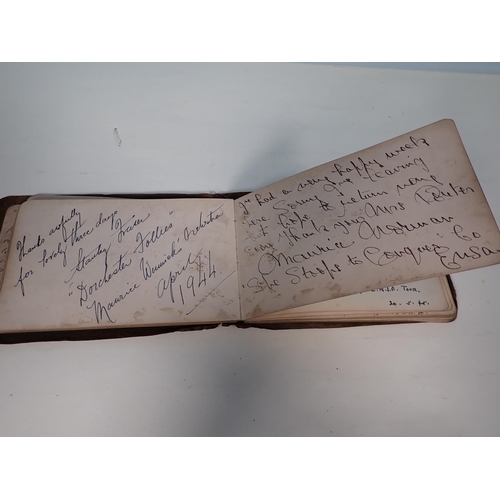 Thanks awfully
for lovely three days
Stanley Fraser
"Dorchester Follies"
Maurice Winnick's Orchestra
April
1944
I've had a very happy week
am sorry I'm leaving
& hope to return very
soon, thank you Mrs
Maurice Norman
"She Stoops to Conquer" Co
ENSA
E.N.S.A. Tour
20. 5. 45.